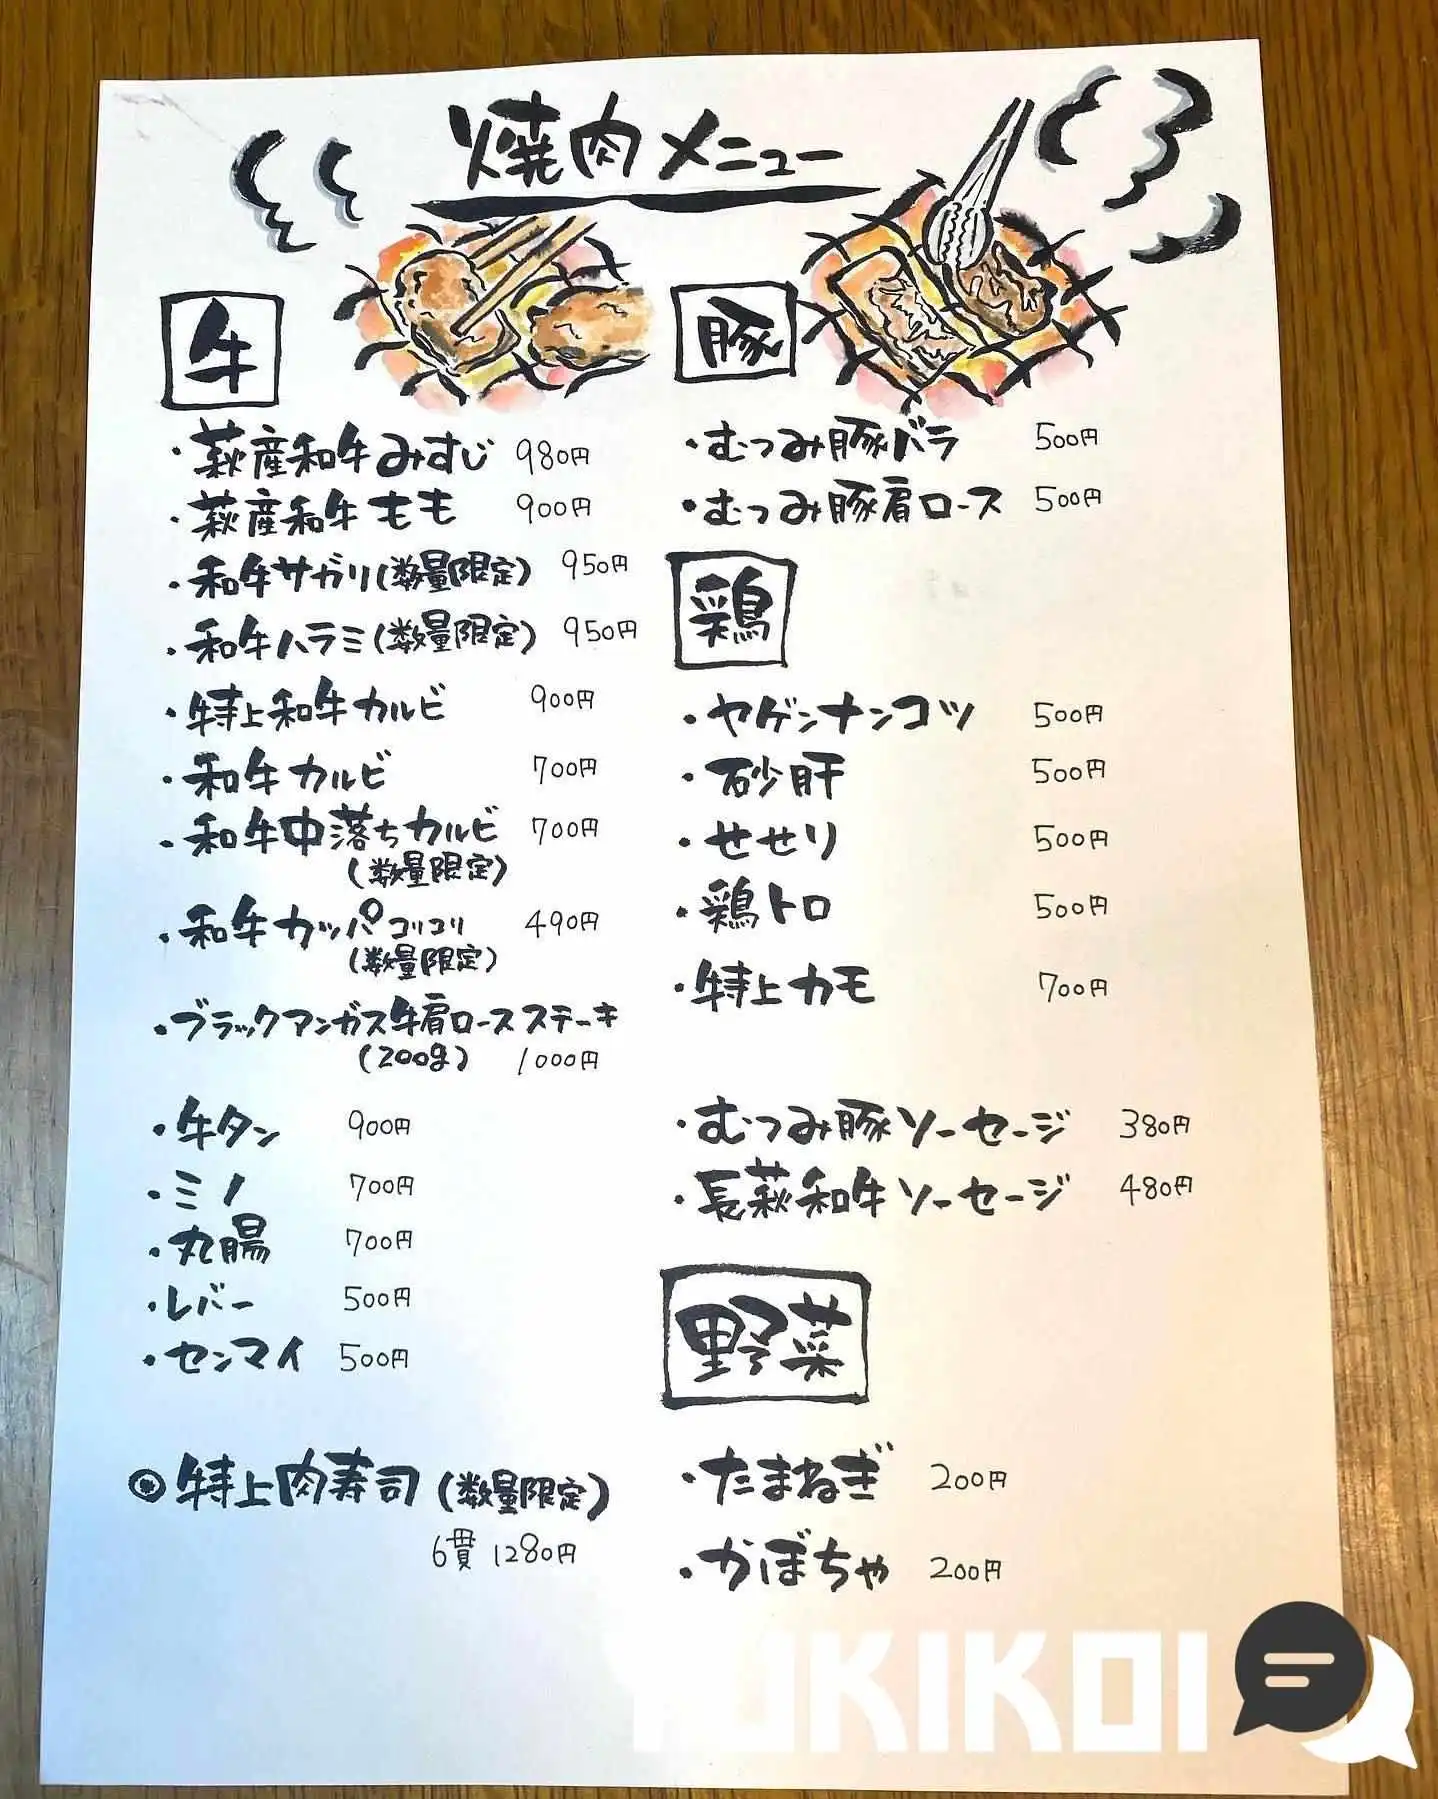 焼肉メニュー
牛
・萩産和牛みすじ 980円
・萩産和牛もも 900円
・和牛サガリ(数量限定) 950円
・和牛ハラミ(数量限定) 950円
・特上和牛カルビ 900円
・和牛カルビ 700円
・和牛中落ちカルビ 700円
(数量限定)
・和牛カッパコリコリ 490円
(数量限定)
・ブラックアンガス牛肩ロースステーキ
(200g) 1000円
・牛タン 900円
・ミノ 700円
・丸腸 700円
・レバー 500円
・センマイ 500円
◎特上肉寿司(数量限定)
6貫 1280円
豚
・むつみ豚バラ 500円
・むつみ豚肩ロース 500円
鶏
・ヤゲンナンコツ 500円
・砂肝 500円
・せせり 500円
・鶏トロ 500円
・特上カモ 700円
・むつみ豚ソーセージ 380円
・長萩和牛ソーセージ 480円
野菜
・たまねぎ 200円
・かぼちゃ 200円
YUKIKOI